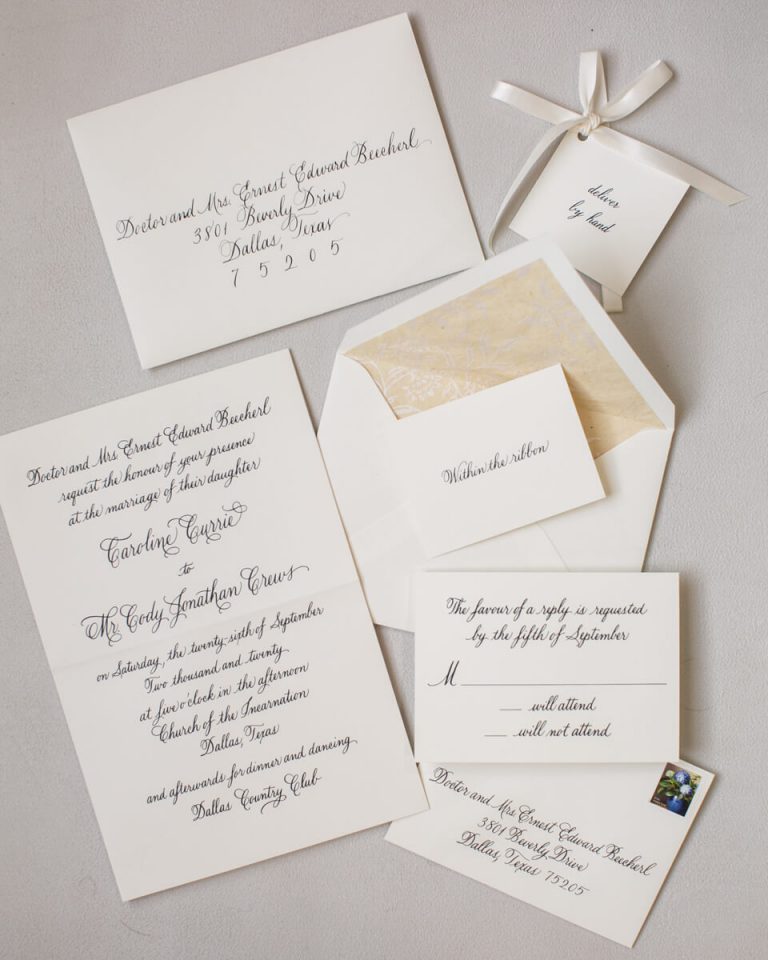 Doctor and Mrs. Ernest Edward Beecherl
3801 Beverly Drive
Dallas, Texas
7 5 2 0 5
deliver
by hand
Within the ribbon
Doctor and Mrs. Ernest Edward Beecherl
request the honour of your presence
at the marriage of their daughter
Caroline Currie
to
Mr. Cody Jonathan Crews
on Saturday, the twenty-sixth of September
Two thousand and twenty
at five o'clock in the afternoon
Church of the Incarnation
Dallas, Texas
and afterwards for dinner and dancing
Dallas Country Club
The favour of a reply is requested
by the fifth of September
M
will attend
will not attend
Doctor and Mrs. Ernest Edward Beecherl
3801 Beverly Drive
Dallas, Texas 75205